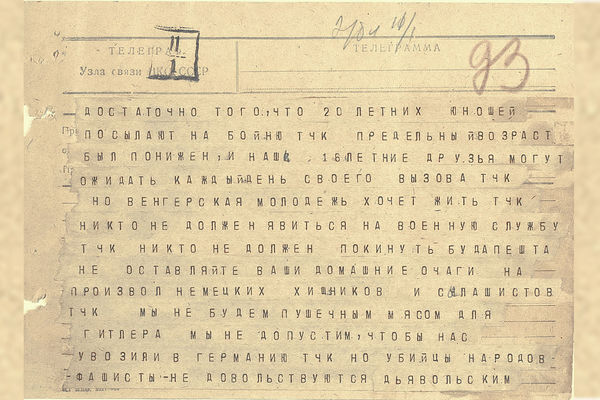 ТЕЛЕГРАФ
ТЕЛЕГРАММА
Узла связи НКО-СССР
ДОСТАТОЧНО ТОГО,ЧТО 20 ЛЕТНИХ ЮНОШЕЙ
ПОСЫЛАЮТ НА БОЙНЮ ТЧК ПРЕДЕЛЬНЫЙВОЗРАСТ
БЫЛ ПОНИЖЕН,И НАШИ 16ЛЕТНИЕ ДРУЗЬЯ МОГУТ
ОЖИДАТЬ КАЖДЫЙДЕНЬ СВОЕГО ВЫЗОВА ТЧК
НО ВЕНГЕРСКАЯ МОЛОДЕЖЬ ХОЧЕТ ЖИТЬ ТЧК
НИКТО НЕ ДОЛЖЕН ЯВИТЬСЯ НА ВОЕННУЮ СЛУЖБУ
ТЧК НИКТО НЕ ДОЛЖЕН ПОКИНУТЬ БУДАПЕШТА
НЕ ОСТАВЛЯЙТЕ ВАШИ ДОМАШНИЕ ОЧАГИ НА
ПРОИЗВОЛ НЕМЕЦКИХ ХИЩНИКОВ И САЛАШИСТОВ
ТЧК МЫ НЕ БУДЕМ ПУШЕЧНЫМ МЯСОМ ДЛЯ
ГИТЛЕРА МЫ НЕ ДОПУСТИМ,ЧТОБЫ НАС
УВОЗИЛИ В ГЕРМАНИЮ ТЧК НО УБИЙЦЫ НАРОДОВ-
-ФАШИСТЫ-НЕ ДОВОЛЬСТВУЮТСЯ ДЬЯВОЛЬСКИМ